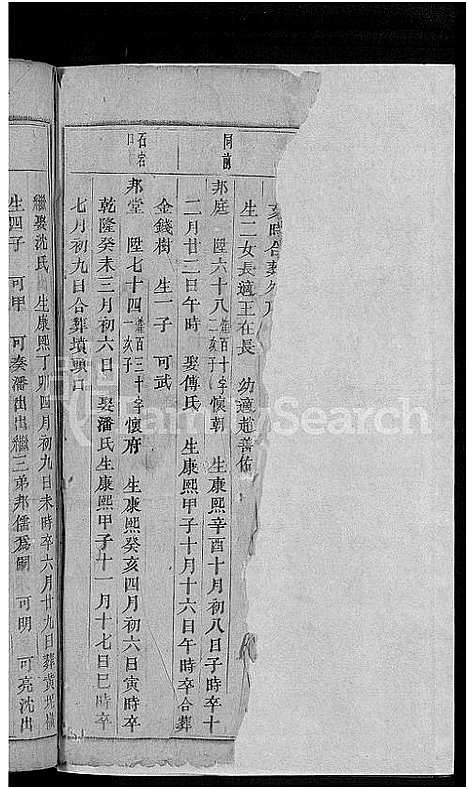 亥時合葬
生二女長適王在長 幼適趙善佑
同前
邦庭 陞六十八 字懷朝 生康熙辛酉十月初八日子時卒十
二月廿二日午時 娶傅氏 生康熙甲子十月十六日午時卒合葬
金錢樹 生一子 可武
石宕口
邦堂 陞七十四 字懷府 生康熙癸亥四月初六日寅時卒
乾隆癸未三月初六日 娶潘氏生康熙甲子十一月十七日巳時卒
七月初九日合葬墳頭口
繼娶沈氏 生康熙丁卯四月初九日未時卒六月廿九日葬黃
生四子 可甲 可奏潘出出繼三弟邦儒爲嗣 可明 可亮沈出
FamilySearch